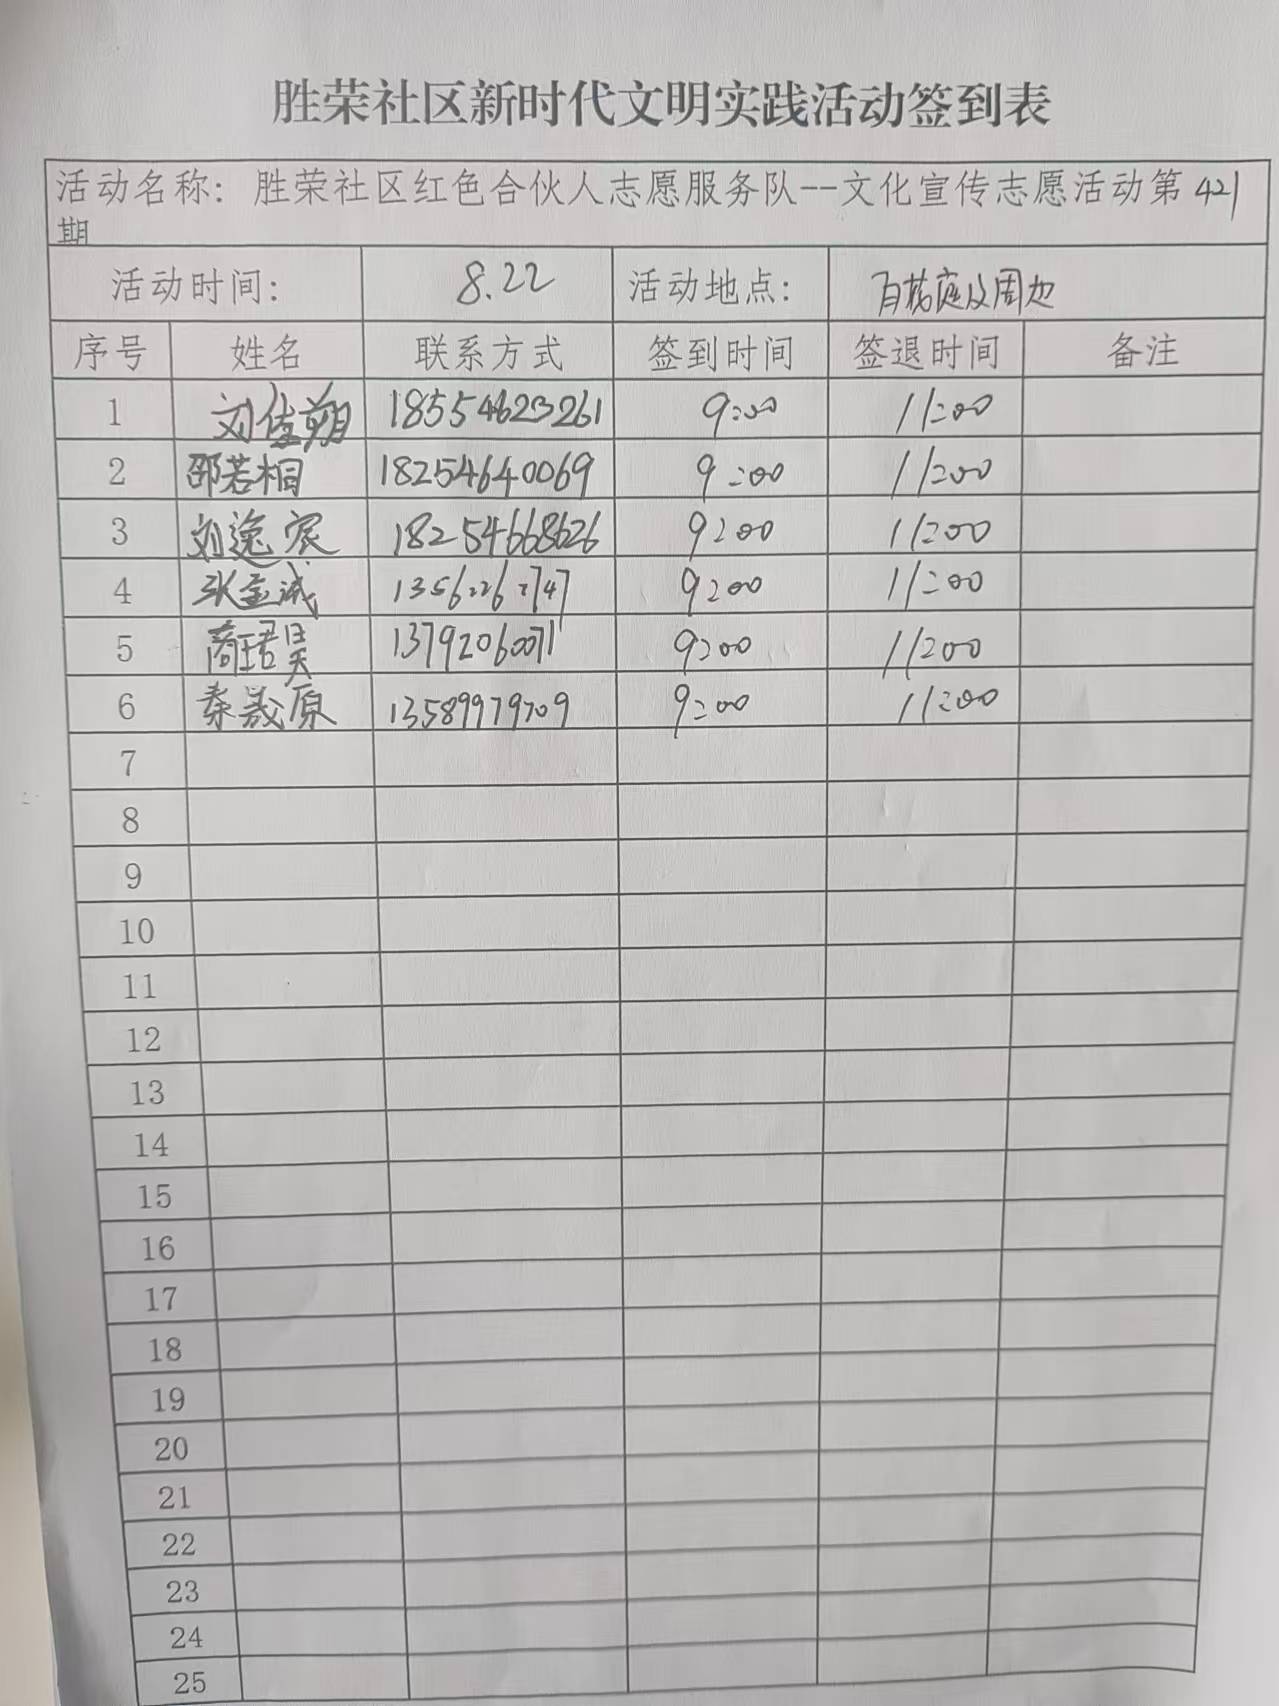 胜荣社区新时代文明实践活动签到表
活动名称: 胜荣社区红色合伙人志愿服务队--文化宣传志愿活动第421
期
活动时间: 8.22 活动地点: 百花庭及周边
序号 姓名 联系方式 签到时间 签退时间 备注
1 刘佳朔 18554623261 9:00 11:00
2 邵若桐 18254640069 9:00 11:00
3 刘逸宸 18254668626 9:00 11:00
4 张金诚 9:00 11:00
5 商珺昊 13792060071 9:00 11:00
6 秦晟原 13589979709 9:00 11:00
7
8
9
10
11
12
13
14
15
16
17
18
19
20
21
22
23
24
25